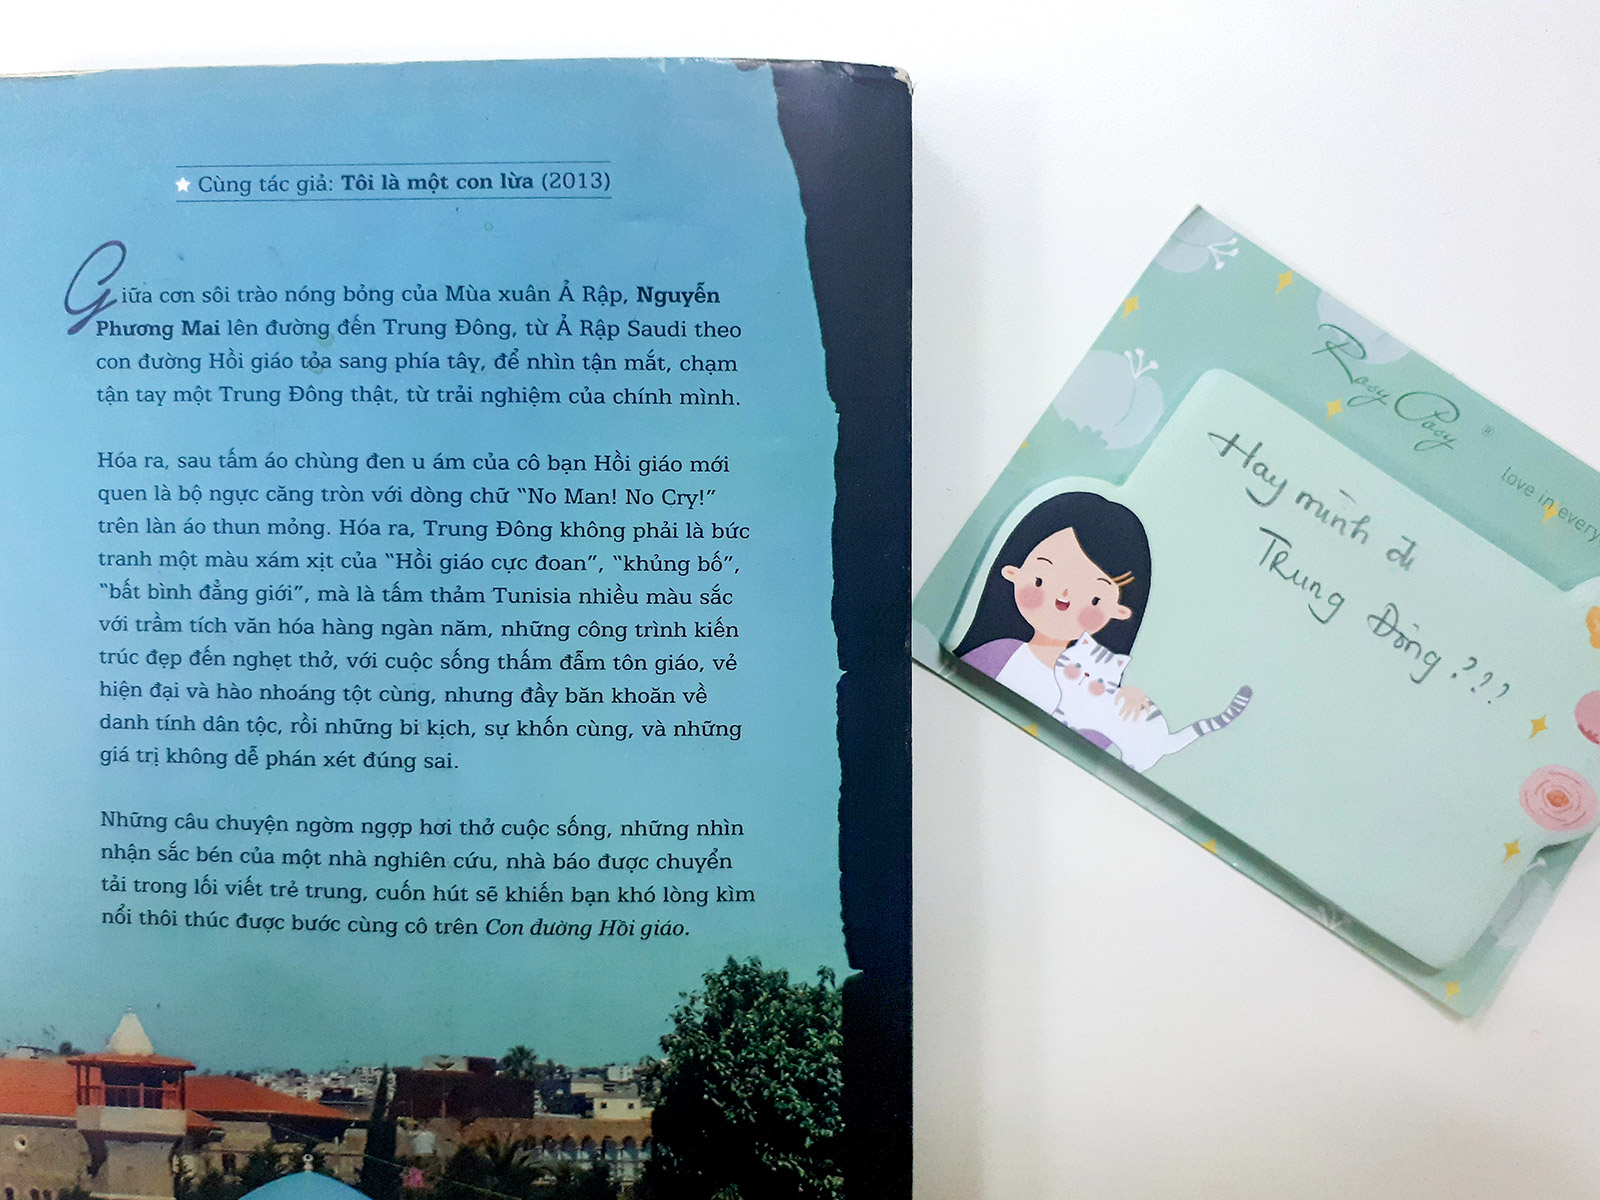 Cùng tác giả: Tôi là một con lừa (2013)
Giữa cơn sôi trào nóng bỏng của Mùa xuân Ả Rập, Nguyễn
Phương Mai lên đường đến Trung Đông, từ Ả Rập Saudi theo
con đường Hồi giáo tỏa sang phía tây, để nhìn tận mắt, chạm
tận tay một Trung Đông thật, từ trải nghiệm của chính mình.
Hóa ra, sau tấm áo chùng đen u ám của cô bạn Hồi giáo mới
quen là bộ ngực căng tròn với dòng chữ “No Man! No Cry!”
trên làn áo thun mỏng. Hóa ra, Trung Đông không phải là bức
tranh một màu xám xịt của “Hồi giáo cực đoan”, “khủng bố”,
“bất bình đẳng giới”, mà là tấm thảm Tunisia nhiều màu sắc
với trầm tích văn hóa hàng ngàn năm, những công trình kiến
trúc đẹp đến nghẹt thở, với cuộc sống thấm đẫm tôn giáo, vẻ
hiện đại và hào nhoáng tột cùng, nhưng đầy băn khoăn về
danh tính dân tộc, rồi những bi kịch, sự khốn cùng, và những
giá trị không dễ phán xét đúng sai.
Những câu chuyện ngờm ngợp hơi thở cuộc sống, những nhìn
nhận sắc bén của một nhà nghiên cứu, nhà báo được chuyển
tải trong lối viết trẻ trung, cuốn hút sẽ khiến bạn khó lòng kìm
nổi thôi thúc được bước cùng cô trên Con đường Hồi giáo.
Rosy Posy ®
love in every
Hay mình đi
Trung Đông???